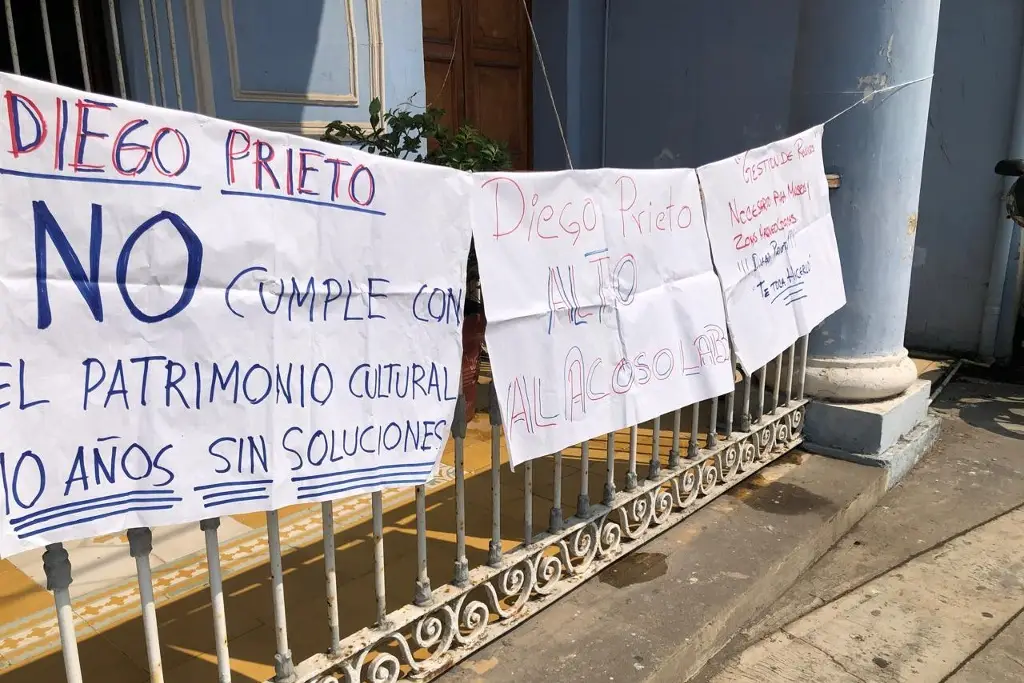 DIEGO PRIETO
NO CUMPLE CON
EL PATRIMONIO CULTURAL
10 AÑOS SIN SOLUCIONES
Diego Prieto
ALTO
ALL ACOSO LAB
"GESTIÓN DE
NECESARIO PARA MUSEOS Y
ZONAS ARQUEOLÓGICAS
TE TOCA HACERLO"